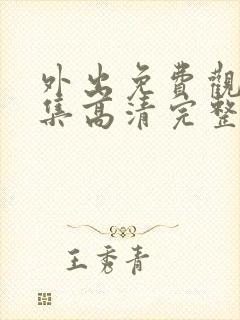 外出免費觀
集高清完整
王秀青